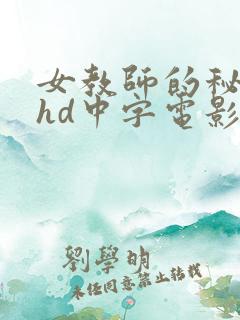 女教師的秘
hd中字電影
劉學明
未經同意禁止轉載